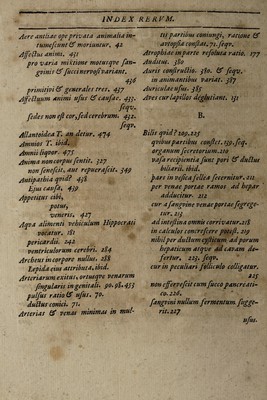 INDEX RERUM.
Aere austiae ope privata animalia in-
tumescunt & moriuntur, 42
Affectus animi, 431
pro varia mixtione motusque san-
guinis & succi nervosi variant,
436
primitivi & generales tres, 437
Affectuum animi usus & causae, 433.
seqv.
sedes non est cor, sed cerebrum. 432.
seqv.
Allantoidea T. an detur, 474
Amnios T. ibid.
Amnii liquor, 475
Anima non corpus sentit, 327
non senescit, aut repuerascit, 349
Antipathia quid? 438
Ejus causa, 439
Appetitus cibi,
potus,
veneris, 427
Aqva alimenti vehiculum Hippocrati
vocatur. 181
pericardii, 242
ventriculorum cerebri. 284
Archeus in corpore nullus. 288
Lepida ejus attributa, ibid.
Arteriarum exitus, ortusque venarum
singularis in genitali. 90. 98, 453
pulsus ratio & usus. 70.
ductus conici. 71.
Arterias & venas minimas in mul-
tis partibus conjungi, ratione &
autopsia constat, 72. seqv.
Atrophiae in parte resoluta ratio. 177
Auditus. 380
Auris constructio. 380. & seqv.
in animantibus variat. 387
Auriculae usus. 385
Aves cur lapillos deglutiant. 131
B.
Bilis quid? 209. 225
quibus partibus constet. 159. seq.
arganum secretorium. 210
vasa recipientia sunt pori & ductus
biliarii. ibid.
pars in vesica fellea secernitur. 211
per venae portae ramos ad hepar
adducitur. 212
cur a sanguine venae portae segrege-
tur, 213
ad intestina omnis corrivatur. 218
in calculos concrescere potest. 219
nihil per ductum cysticum ad porum
hepaticum atque ad cavam de-
fertur, 223. seqv.
cur in peculiari folliculo colligatur.
225
non effervescit cum succo pancreati-
co. 226.
sanguini nullum fermentum sugge-
rit. 227
usus.